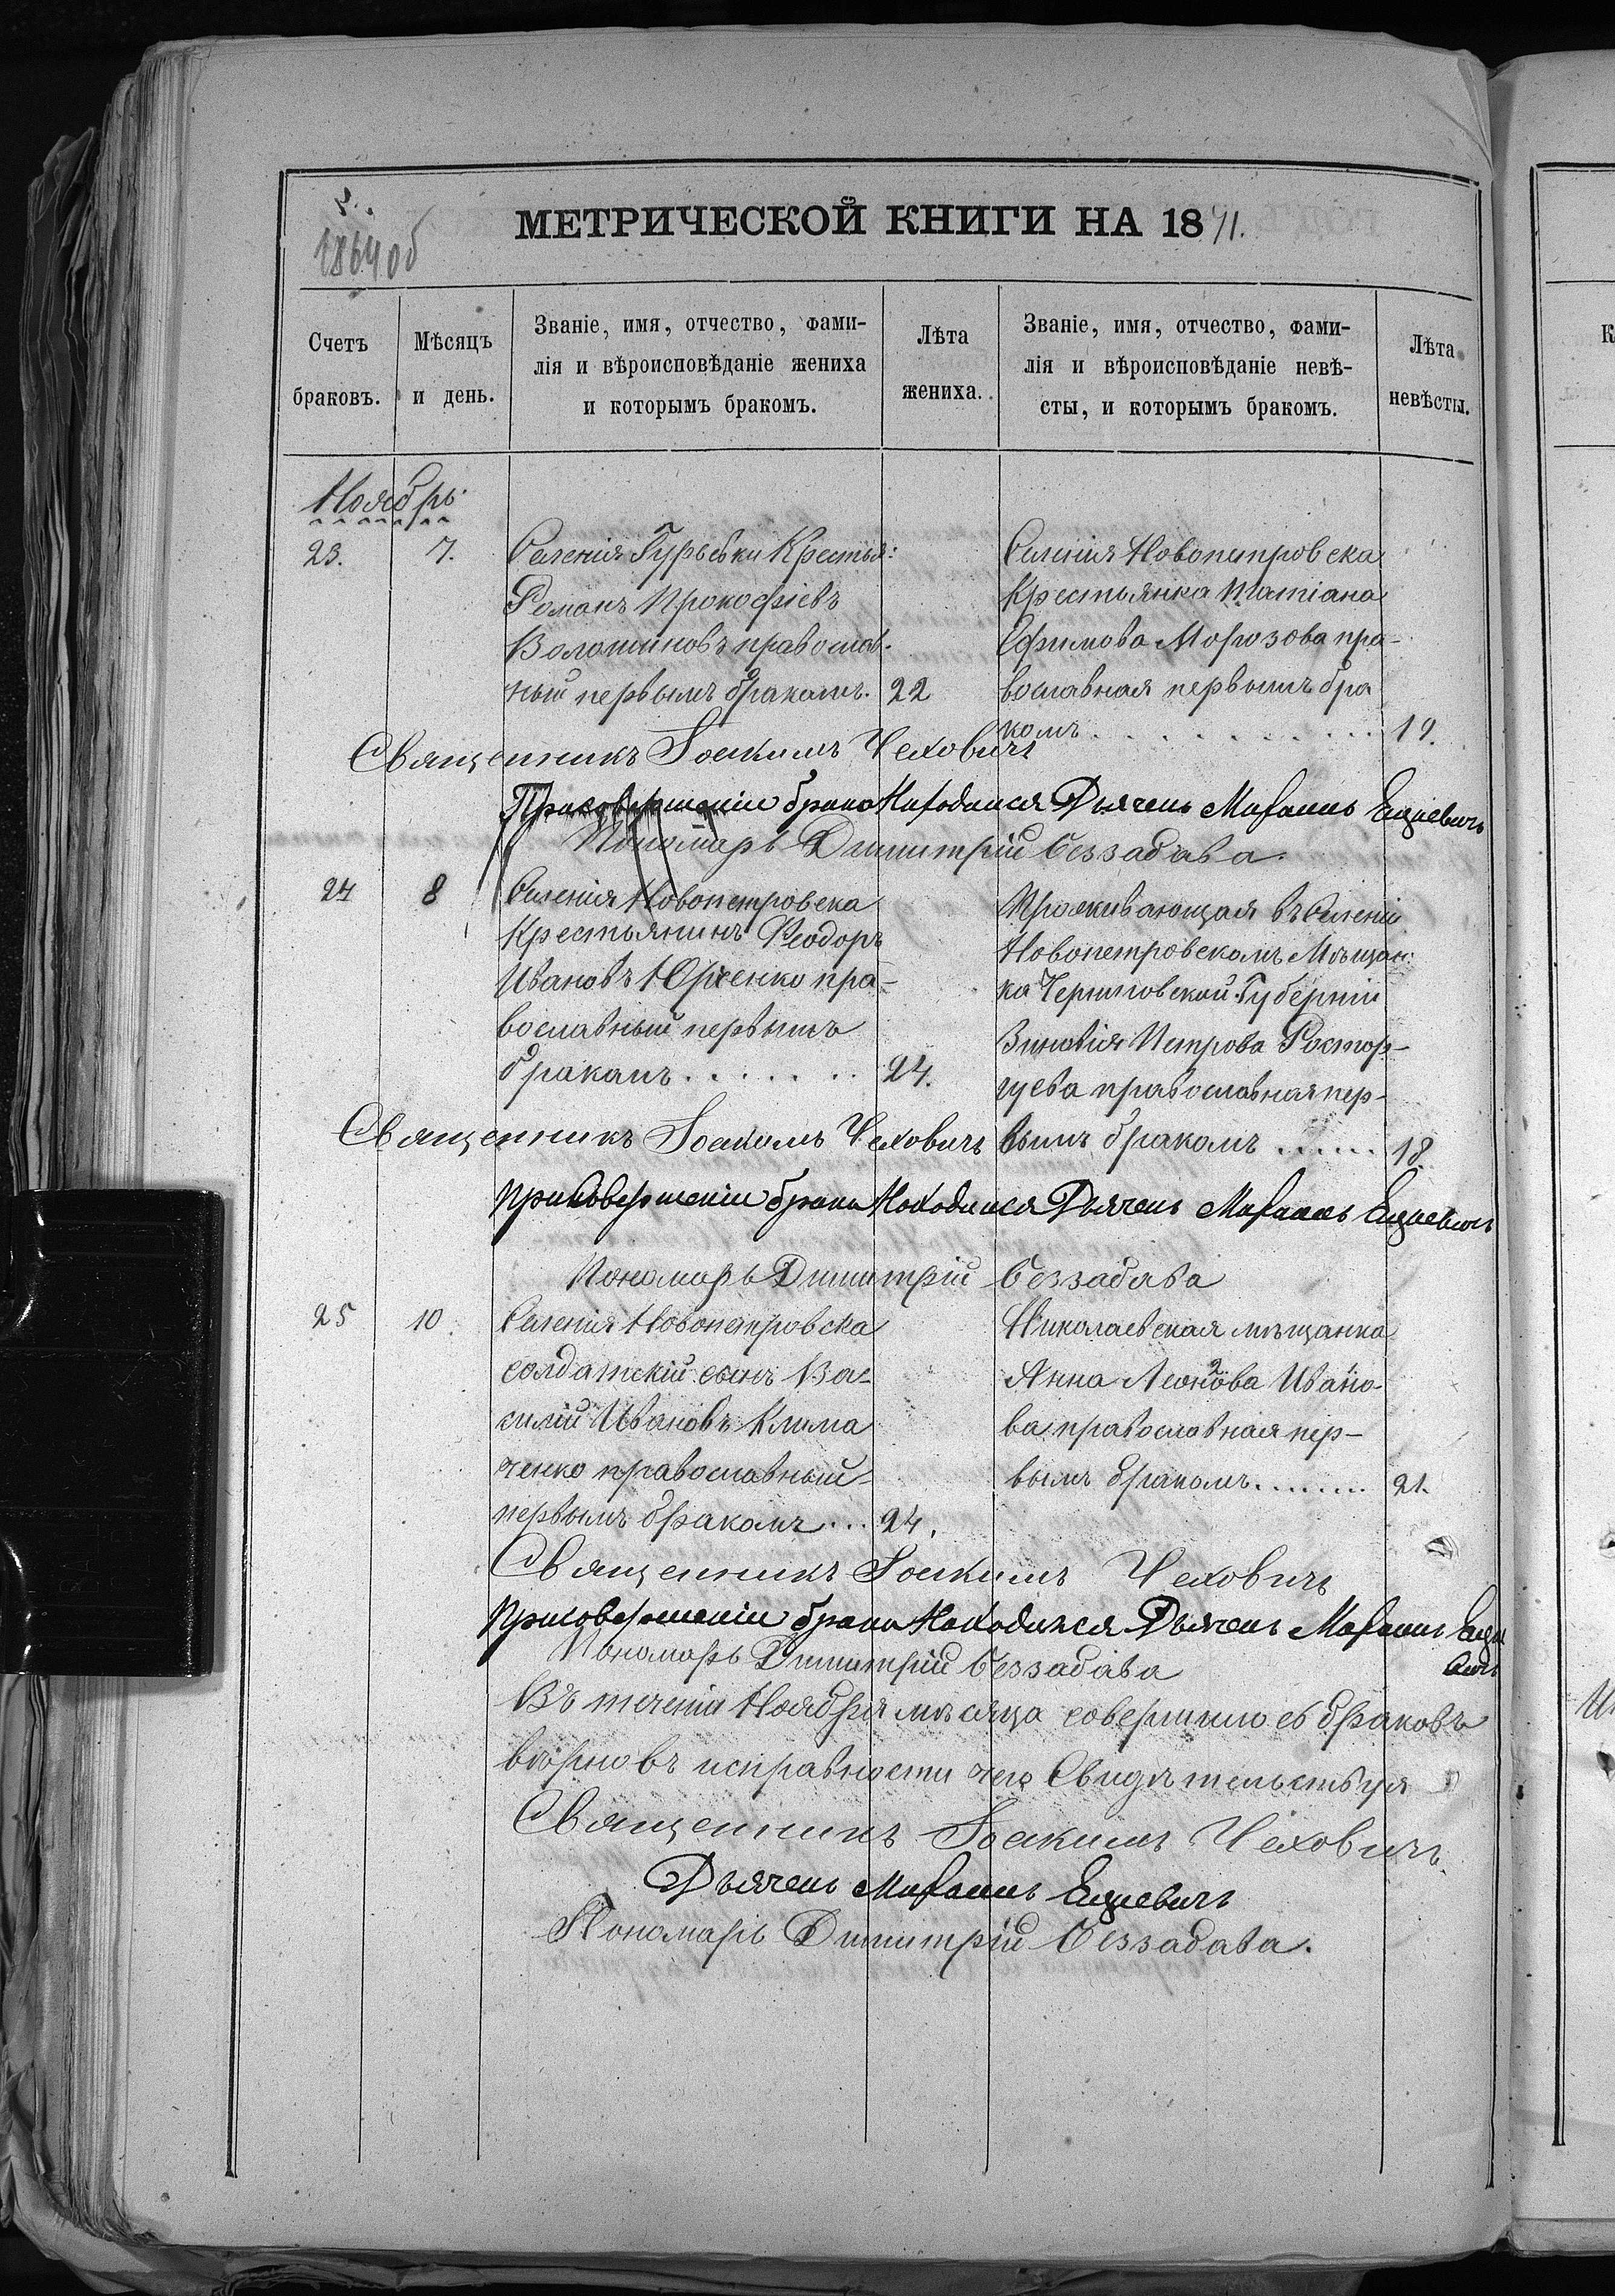 МЕТРИЧЕСКОЙ КНИГИ НА 1871.
Счетъ браковъ.
Мѣсяцъ и день.
Званіе, имя, отчество, фами-
лія и вѣроисповѣданіе жениха
и которымъ бракомъ.
Лѣта жениха.
Званіе, имя, отчество, фами-
лія и вѣроисповѣданіе невѣ-
сты, и которымъ бракомъ.
Лѣта невѣсты.
Ноябрь.
23.
7.
Селенія Гурьевки Крестья:
Романъ Прокофіевъ
Волошиновъ православ.
ный первымъ бракомъ. 22
Селенія Новопетровска
Крестьянка Татіана
Ефимова Морозова пра-
вославная первымъ бра
комъ . . . . . . . . . . . 19.
Священникъ Іоакимъ Чеховичъ
При совершеніи брака Находился Дьячекъ
Пономарь Димитрій Беззабава.
24
8
Селенія Новопетровска
Крестьянинъ Феодоръ
Ивановъ Юрченко пра-
вославный первымъ
бракомъ . . . . . . . 24.
Проживающая въ Селеніи
Новопетровскомъ Мѣщан:
ка Черниговской Губерніи
Зиновія Петрова Растор-
гуева православная пер-
вымъ бракомъ . . . . . . 18.
Священникъ Іоакимъ Чеховичъ
При совершеніи брака Находился Дьячекъ
Пономарь Димитрій Беззабава
25
10.
Селенія Новопетровска
солдатскій сынъ Ва-
силій Ивановъ Клима
ченко православный
первымъ бракомъ . . . 24.
Николаевская мѣщанка
Анна Леонова Ивано-
ва православная пер-
вымъ бракомъ . . . . . . . 21.
Священникъ Іоакимъ Чеховичъ
При совершеніи брака Находился Дьячекъ
Пономарь Димитрій Беззабава
Въ теченіи Ноября мѣсяца браковъ
вѣрно въ исправности чего Свидѣтельствуя
Священникъ Іоакимъ Чеховичъ.
Дьячекъ
Пономарь Димитрій Беззабава.